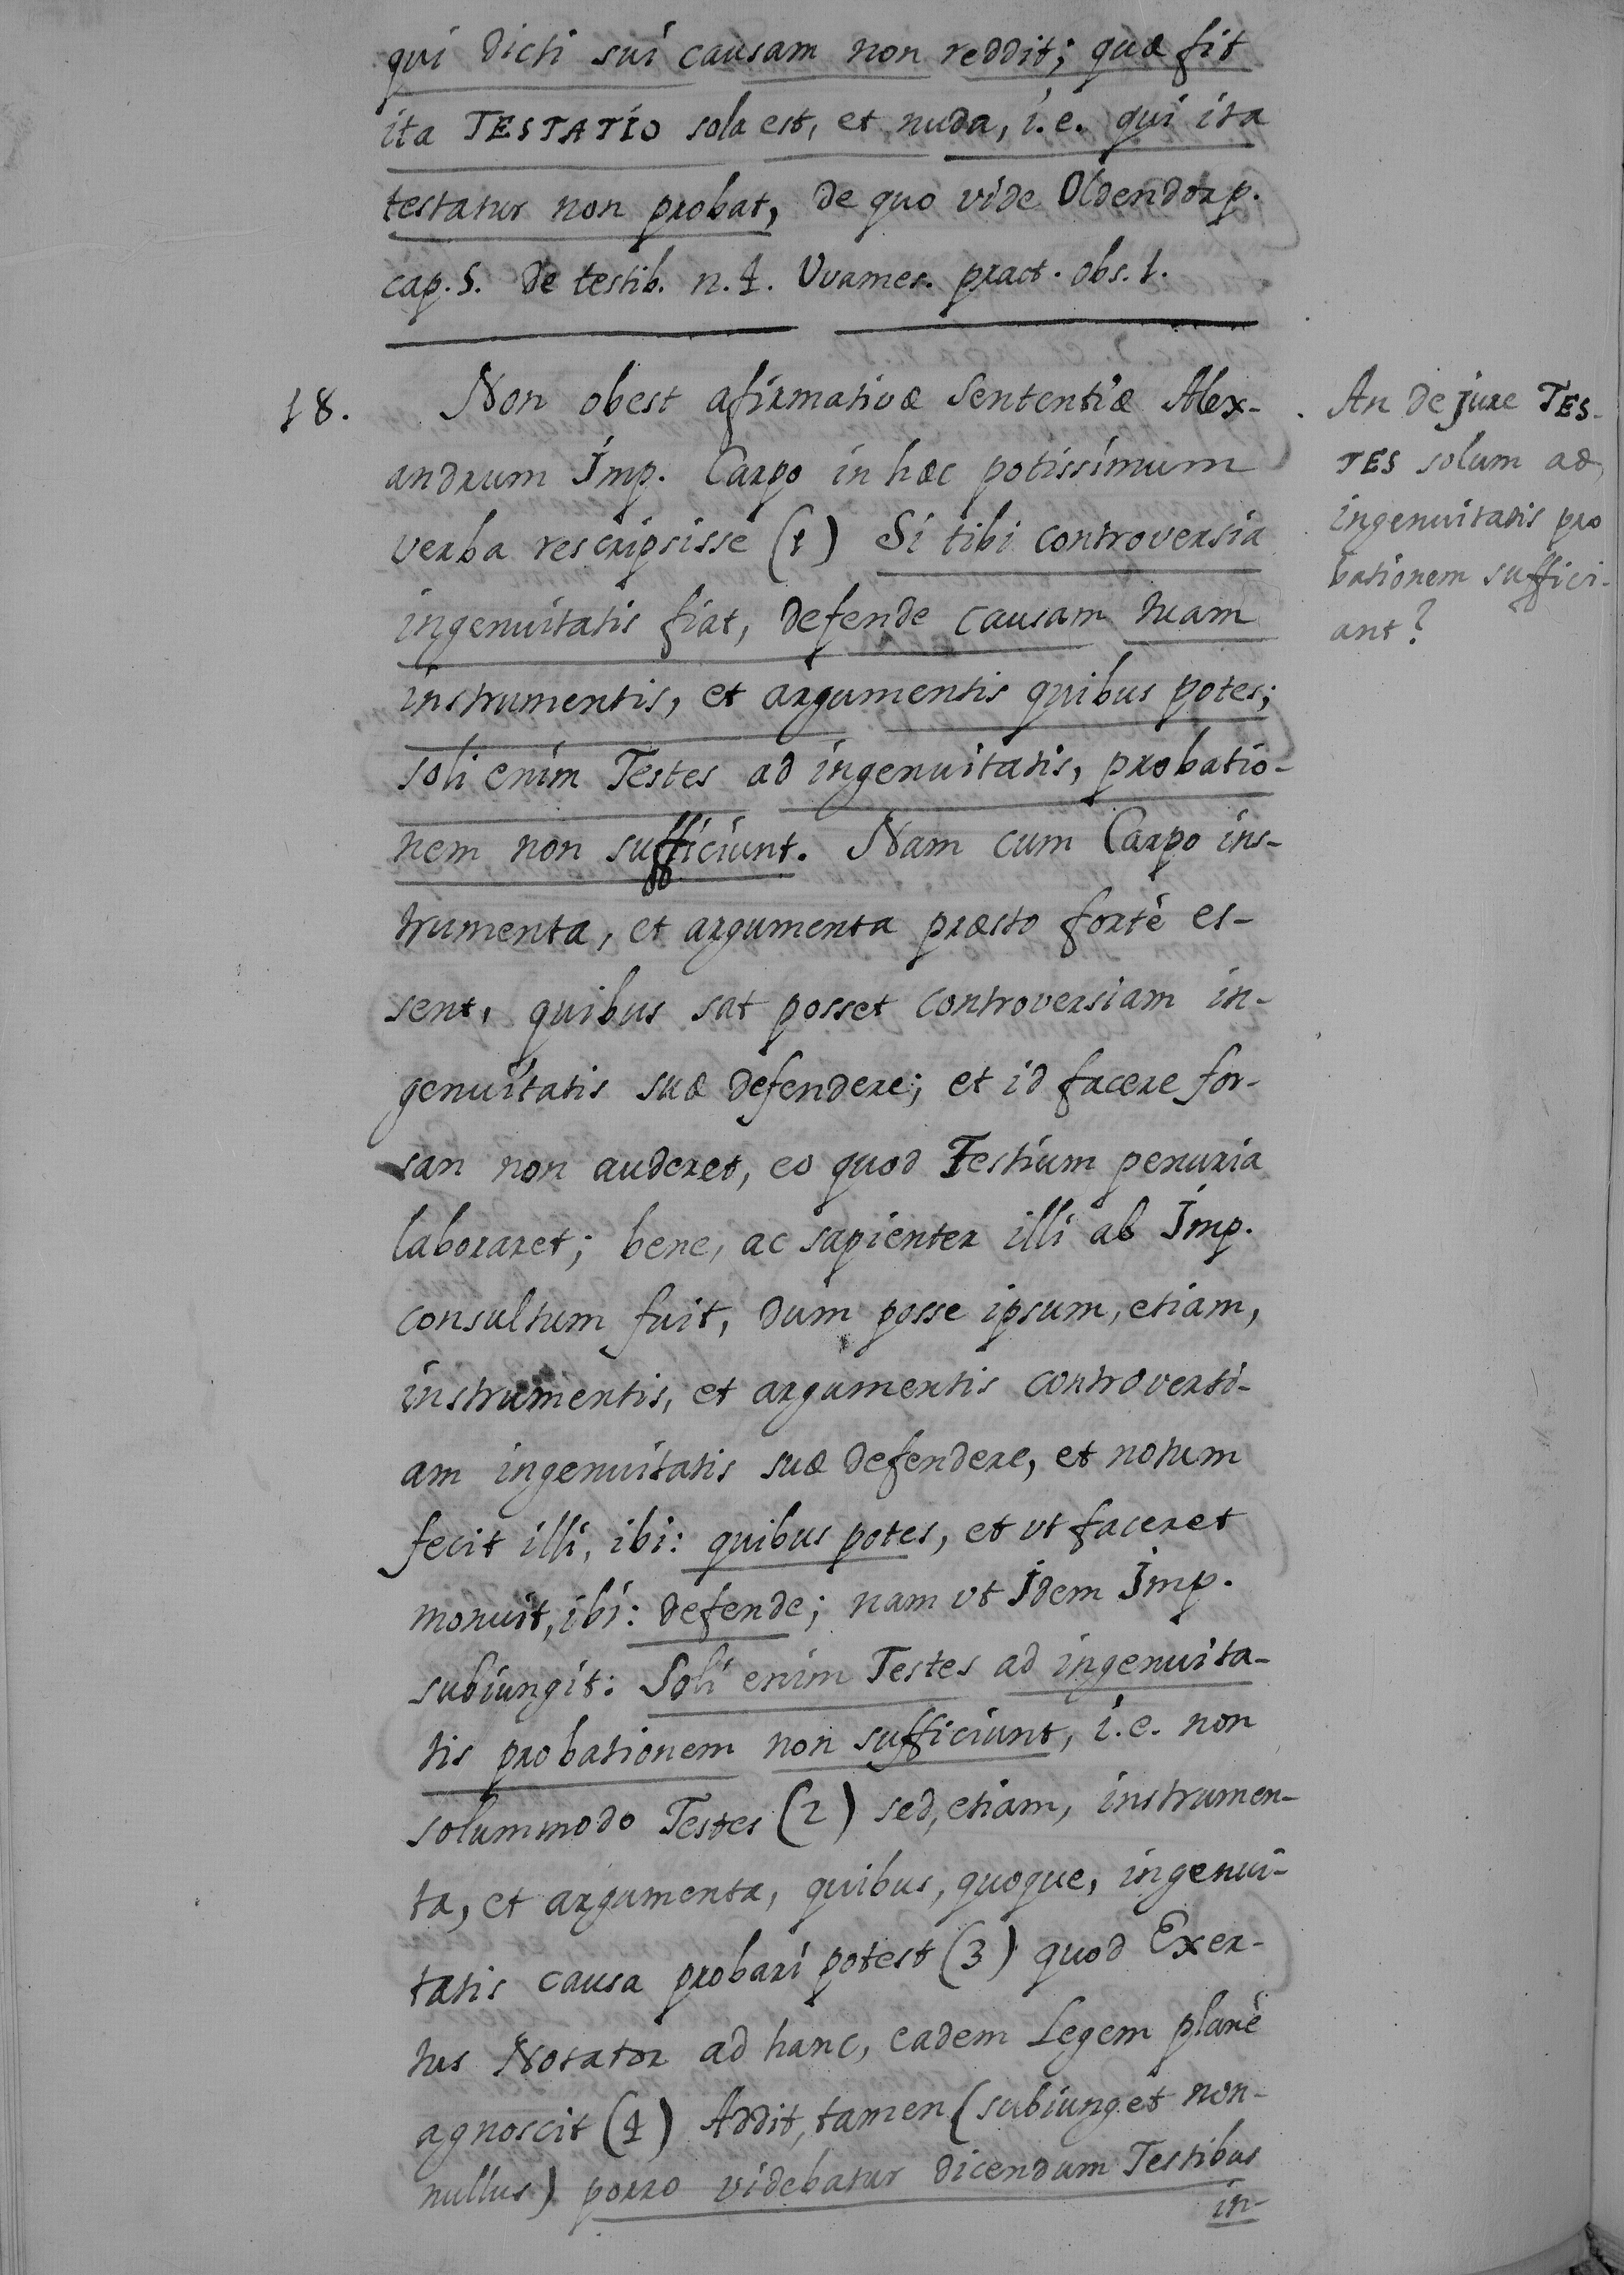 qui dicti sui causam non reddit; quæ fit
ita TESTATIO sola est, et nuda, i.e. qui ita
testatur non probat, de quo vide Oldendorp.
cap. 5. de testib. n. 4. Vvames. pract. obs. 1.
18. Non obest afirmativæ Sententiæ Alex-
andrum Imp. Carpo in hæc potissimum
verba rescripsisse (1) Si tibi controversia
ingenuitatis fiat, defende causam tuam
instrumentis, et argumentis quibus potes;
soli enim Testes ad ingenuitatis, probatio-
nem non sufficiunt. Nam cum Carpo ins-
trumenta, et argumenta præsto fortè es-
sent, quibus sat posset controversiam in-
genuitatis suæ defendere; et id facere for-
san non auderet, eo quod Testium penuria
laboraret; bene, ac sapienter illi ab Imp.
consultum fuit, dum posse ipsum, etiam,
instrumentis, et argumentis controversi-
am ingenuitatis suæ defendere, et notum
fecit illi, ibi: quibus potes, et vt faceret
monuit, ibi: defende; nam vt Idem Imp.
subiungit: Soli enim Testes ad ingenuita-
tis probationem non sufficiunt, i.e. non
solummodo Testes (2) sed, etiam, instrumen-
ta, et argumenta, quibus, quoque, ingenui-
tatis causa probari potest (3) quod Exer-
tus Notator ad hanc, eadem Legem planè
agnoscit (4) Addit, tamen (subiunget non-
nullus) porro videbatur dicendum Testibus
in-
An de jure TES-
TES solum ad
ingenuitatis pro
bationem suffici-
ant?